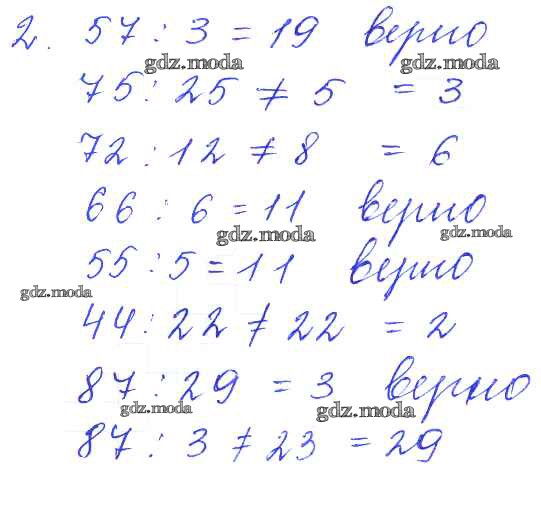 2. 57 : 3 = 19 верно
gdz.moda gdz.moda
75 : 25 ≠ 5 = 3
72 : 12 ≠ 8 = 6
66 : 6 = 11 верно
gdz.moda gdz.moda
55 : 5 = 11 верно
gdz.moda
44 : 22 ≠ 22 = 2
87 : 29 = 3 верно
gdz.moda gdz.moda
87 : 3 ≠ 23 = 29